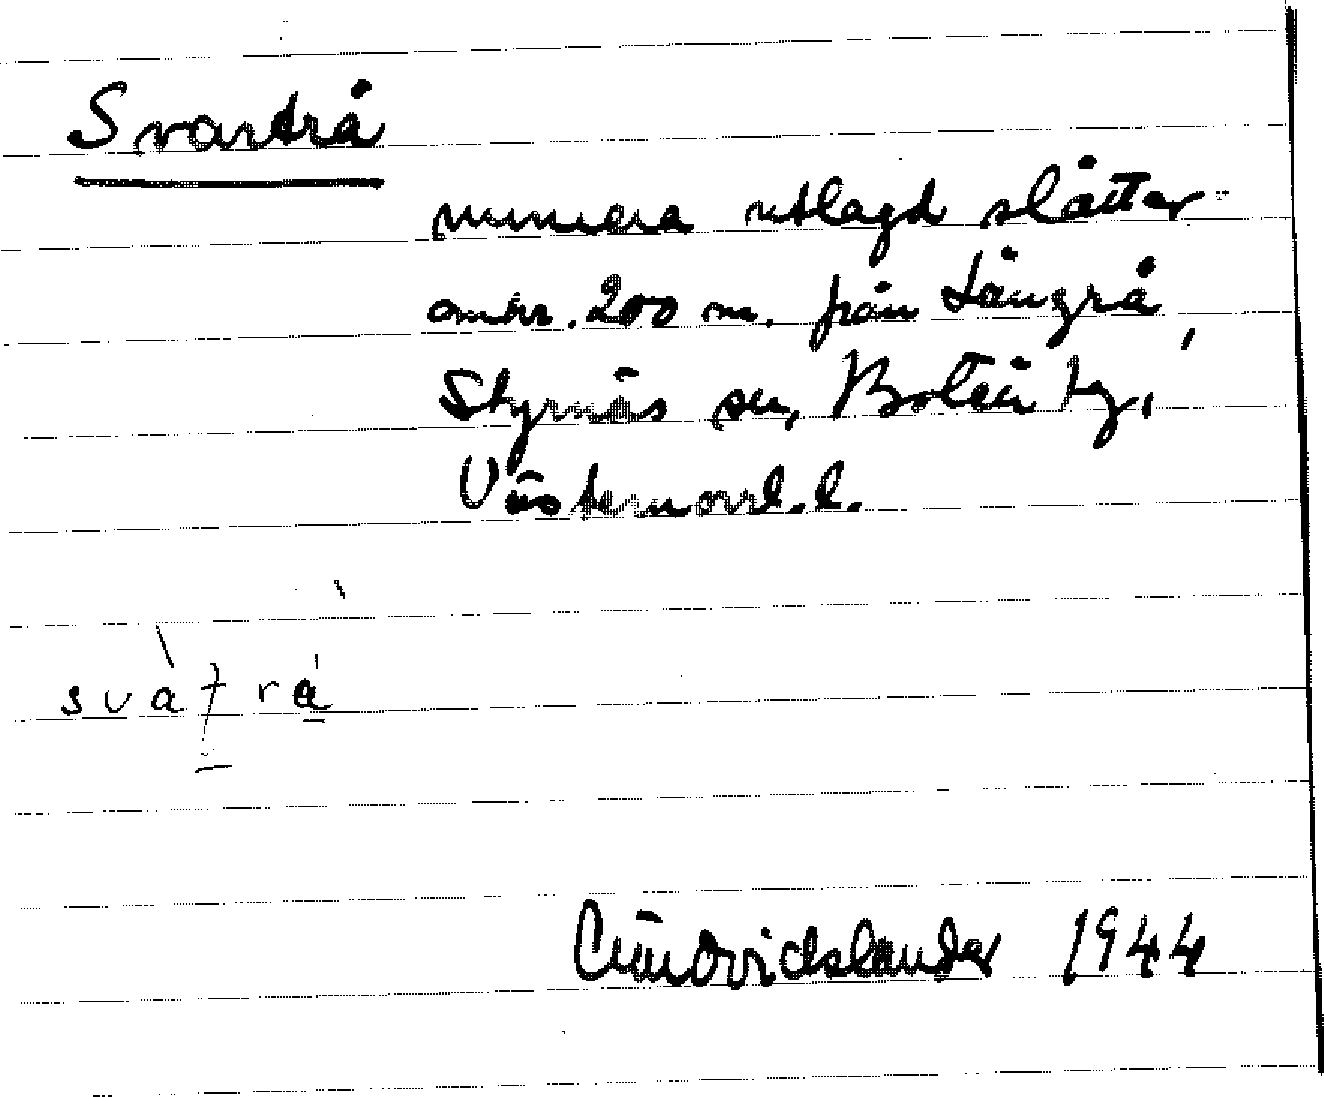 Svartrå
numera utlagd slåtter
omkr. 200 m. från Långrå,
Styrnäs sn, Boteå tg,
Västernorrl. l.
svàtrå
Ovidslander 1944